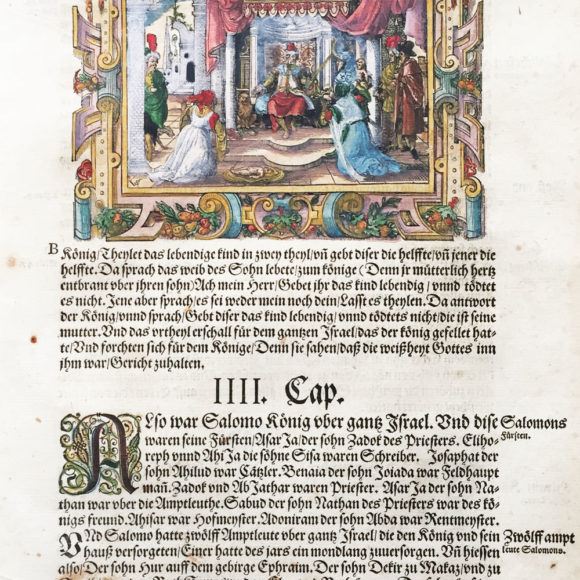 B
König/Theylet das lebendige kind in zwey theyl/vñ gebt diser die helffte/vñ jener die
helffte. Da sprach das weib des Sohn lebete/zum könige (Denn jr mütterlich hertz
entbrant vber jhren sohn) Ach mein Herr/Gebet jhr das kind lebendig/vnnd tödtet
es nicht. Jene aber sprach/es sei weder mein noch dein/Lasst es theylen. Da antwort
der König/vnnd sprach/Gebt diser das kind lebendig/vnnd tödtets nicht/die ist seine
mutter. Vnd das vrtheyl erschall für dem gantzen Israel/das der könig gefellet hat-
te/Vnd forchten sich für dem Könige/Denn sie sahen/daß die weißheyt Gottes inn
jhm war/Gericht zuhalten.
IIII. Cap.
Also war Salomo König vber gantz Israel. Vnd dise
waren seine Fürsten/Asar Ja/der sohn Zadok des Priesters. Eliho-
reph vnnd Ahi Ja die söhne Sisa waren Schreiber. Josaphat der
sohn Ahilud war Cätzler. Benaia der sohn Joiada war Feldhaupt
mañ. Zadok vnd Ab Jathar waren Priester. Asar Ja der sohn Na-
than war vber die Amptleuthe. Sabud der sohn Nathan des Priesters war des kö-
nigs freund. Ahisar war Hofmeyster. Adoniram der sohn Abda war Rentmeyster.
VNd Salomo hatte zwölff Amptleuthe vber gantz Israel/die den König vnd sein
hauß versorgeten/Einer hatte des jars ein mondlang zuuersorgen. Vñ hiessen
also/Der sohn Hur auff dem gebirge Ephraim. Der sohn Dekir zu Makaz/vnd zu
Salomons
Fürsten.
Zwölff ampt
leute Salomons.